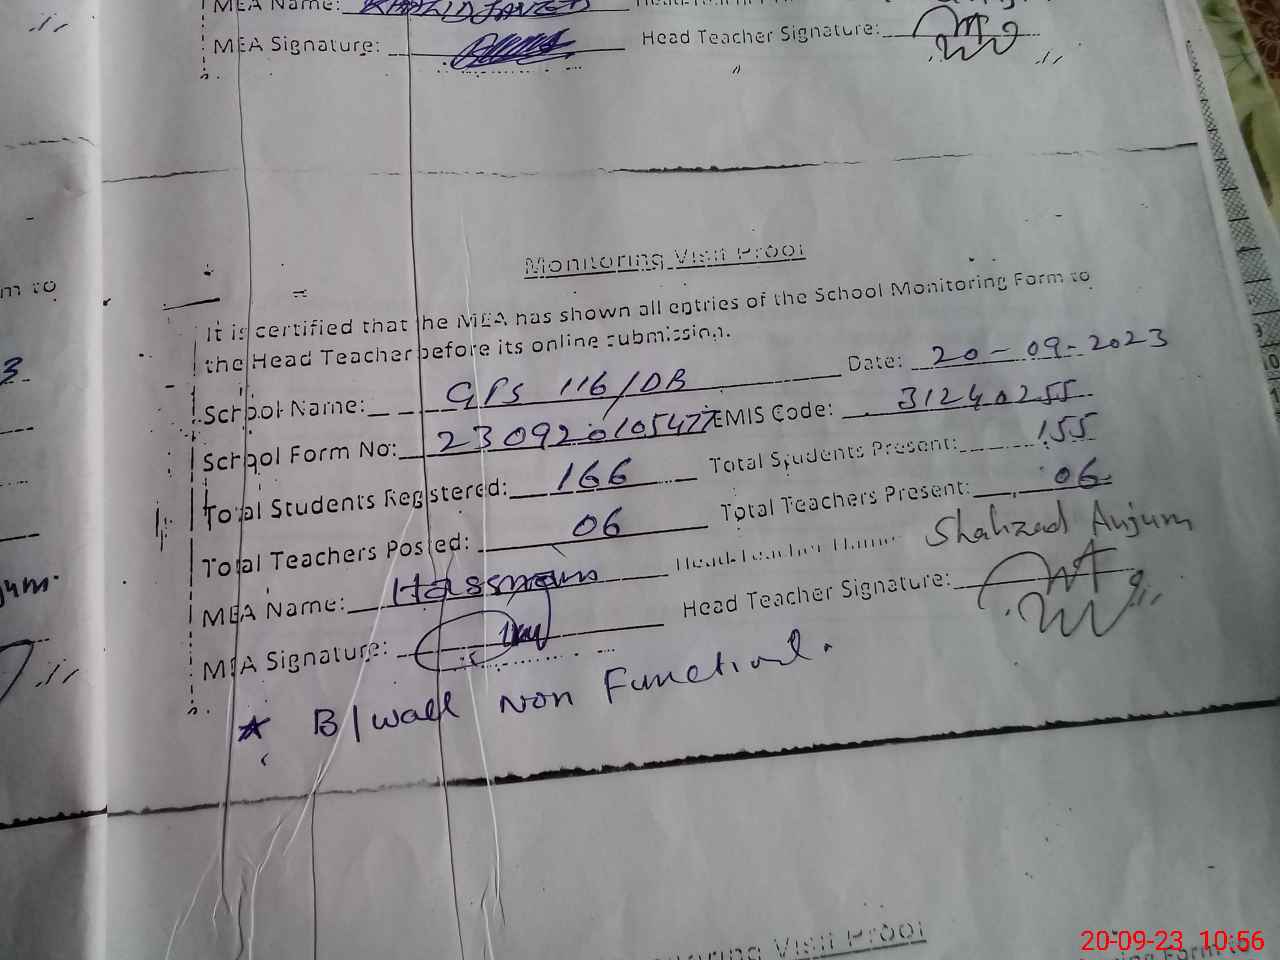 MEA Name: KHALID JAVED
MEA Signature: Head Teacher Signature:
m to
3
jum.
Monitoring Visit Proof
It is certified that the MEA has shown all entries of the School Monitoring Form to
the Head Teacher before its online submission.
School Name: GPS 116/DB Date: 20-09-2023
School Form No: 230920105477 EMIS Code: 31240255
Total Students Registered: 166 Total Students Present: 155
Total Teachers Posted: 06 Total Teachers Present: 06
MEA Name: Head Teacher Name: Shahzad Anjum
MEA Signature: Head Teacher Signature:
* B/wall non Functional.
Monitoring Visit Proof
20-09-23 10:56